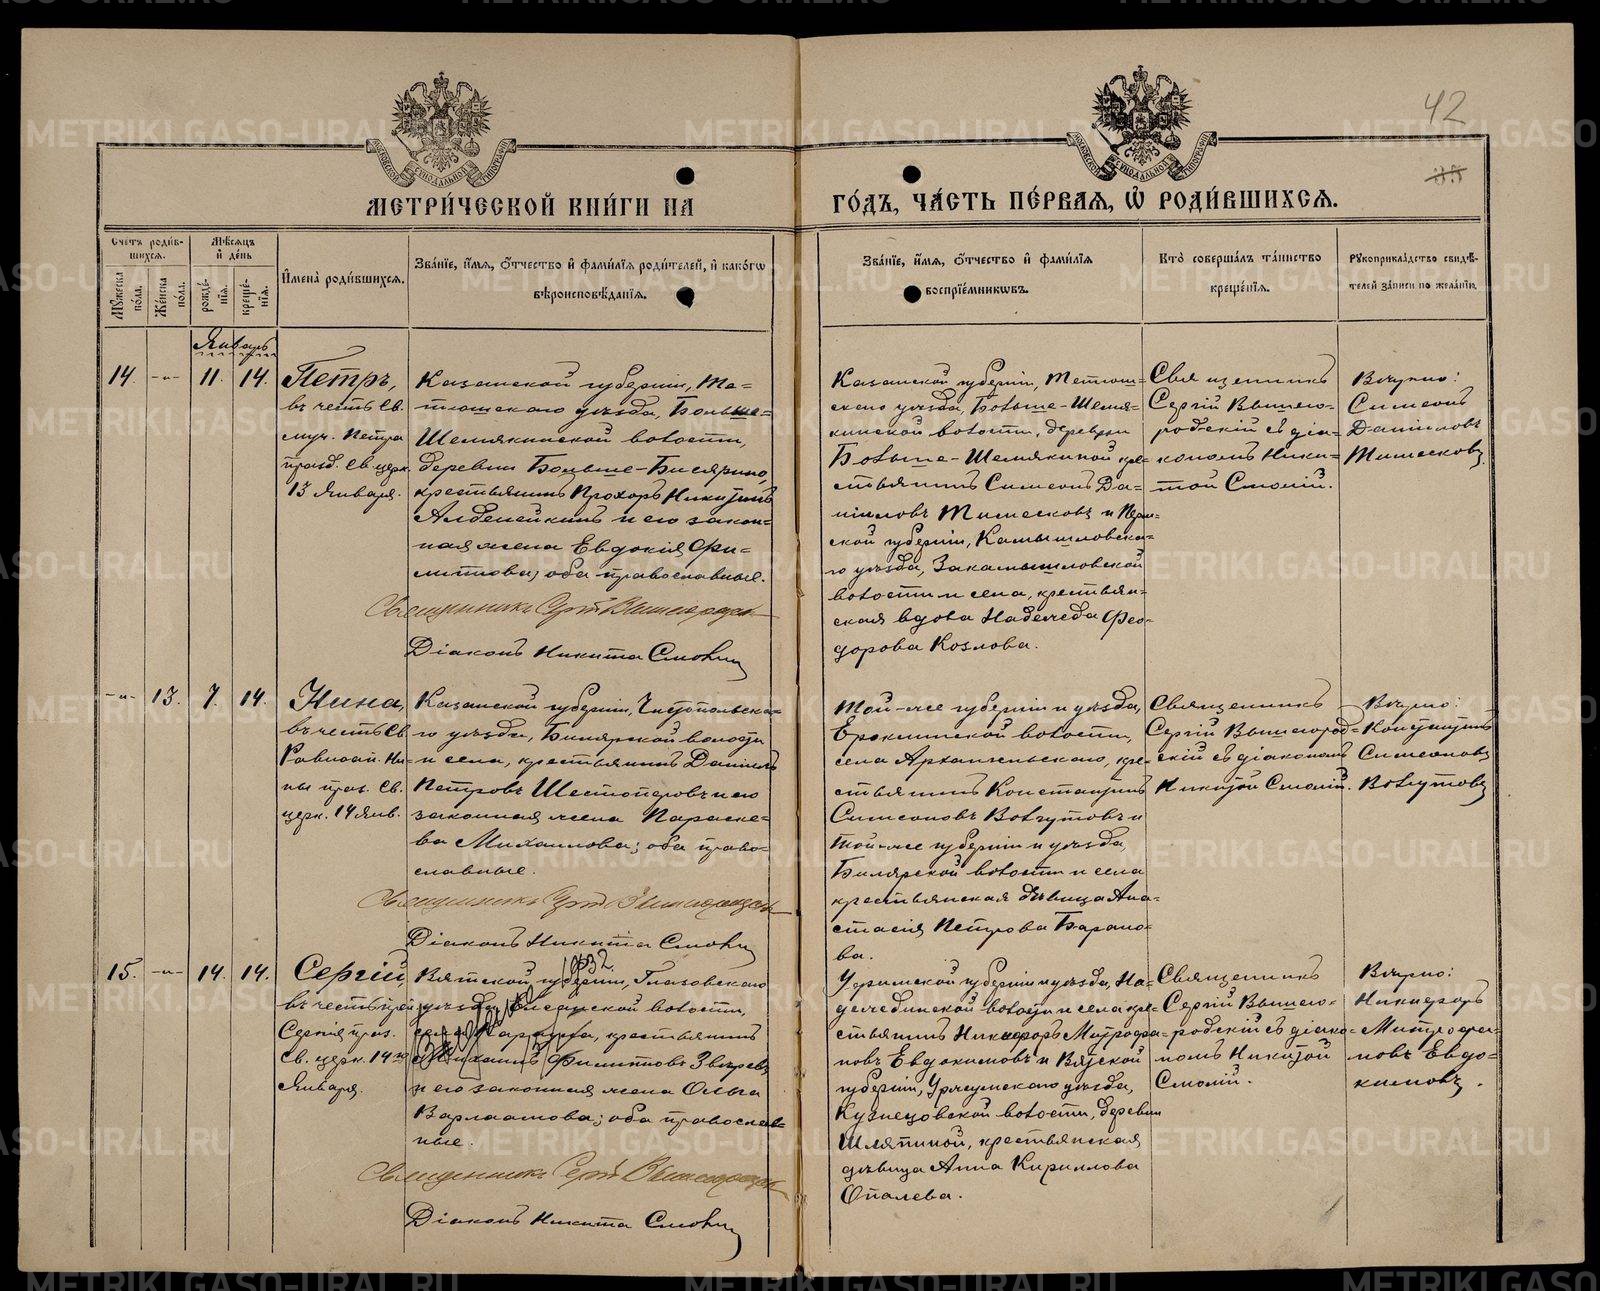 42
МЕТРИ́ЧЕСКОЙ КНИ́ГИ НА
ГО́ДЪ, ЧА́СТЬ ПЕ́РВАѦ, Ѡ҆ РОДИ́ВШИХСѦ.
Сче́тъ роди́в-
шихсѧ.
Мѣ́сѧцъ
и҆ де́нь
Мꙋ́жеска по́ла.
Же́нска по́ла.
рожде́-
нїѧ.
креще́-
нїѧ.
И҆мена̀ роди́вшихсѧ.
Зва́нїе, и҆́мѧ, ѻ҆́тчество и҆ фами́лїѧ роди́телей, и҆ како́гѡ
вѣроисповѣ́данїѧ.
Зва́нїе, и҆́мѧ, ѻ҆́тчество и҆ фами́лїѧ
воспрїе́мникѡвъ.
Кто̀ соверша́лъ та́инство
креще́нїѧ.
Рꙋкоприкла́дство свидѣ́-
телей за́писи по жела́нїю.
Январь
14.
-„-
11.
14.
Петръ,
въ честь св.
муч. Петра
празд. св. церк.
13 Января.
Казанской губерніи, Те-
тюшскаго уѣзда, Больше-
Шемякинской волости,
деревни Больше-Бисярино,
крестьянинъ Прохоръ Никитинъ
и его закон-
ная жена Евдокія Фи-
липпова; оба православные.
Священникъ Сергій Вышегородскій
Діаконъ Никита Смолій
Казанской губерніи, Тетюш-
скаго уѣзда, Больше-Шемя-
кинской волости, деревни
Больше-Шемякиной кре-
стьянинъ Симеонъ Да-
ніиловъ и Перм-
ской губерніи, Камышловска-
го уѣзда, Закамышловской
волости и села, крестьян-
ская вдова Надежда Фео-
дорова Козлова.
Священникъ
Сергій Вышего-
родскій съ діа-
кономъ Ники-
той Смолій.
Симеонъ
Даніиловъ
-„-
13.
7.
14.
Нина,
въ честь св.
Равноап. Ни-
ны праз. св.
церк. 14 Янв.
Казанской губерніи, Чистопольска-
го уѣзда, Билярской волости
и села, крестьянинъ Даніилъ
Петровъ Шестоперовъ и его
законная жена Параске-
ва Михаилова; оба право-
славные.
Священникъ Сергій Вышегородскій
Діаконъ Никита Смолій
Той-же губерніи и уѣзда,
волости,
села Архангельскаго, кре-
стьянинъ Константинъ
Симеоновъ Волгутовъ и
той-же губерніи и уѣзда,
Билярской волости и села
крестьянская дѣвица Ана-
стасія Петрова Барано-
ва.
Священникъ
Сергій Вышегород-
скій съ діакономъ
Никитой Смолій.
Симеоновъ
Волгутовъ
15.
-„-
14.
14.
Сергій,
въ честь преп.
Сергія праз.
св. церк. 14го
Января.
1932.
Вятской губерніи, Глазовскаго
уѣзда, волости,
села Карсовая, крестьянинъ
Михаилъ Филипповъ Звѣревъ
и его законная жена Ольга
Варлаамова; оба православ-
ные.
Священникъ Сергій Вышегородскій
Діаконъ Никита Смолій
Уфимской губерніи и уѣзда, На-
деждинской волости и села кре-
стьянинъ Никифоръ Митрофа-
новъ Евдокимовъ и Вятской
губерніи, Уржумскаго уѣзда,
Кузнецовской волости, деревни
Шляпиной, крестьянская
дѣвица Анна Кириллова
Опалева.
Священникъ
Сергій Вышего-
родскій съ діако-
номъ Никитой
Смолій.
Никифоръ
Митрофа-
новъ Евдо-
кимовъ.
METRIKI.GASO-URAL.RU